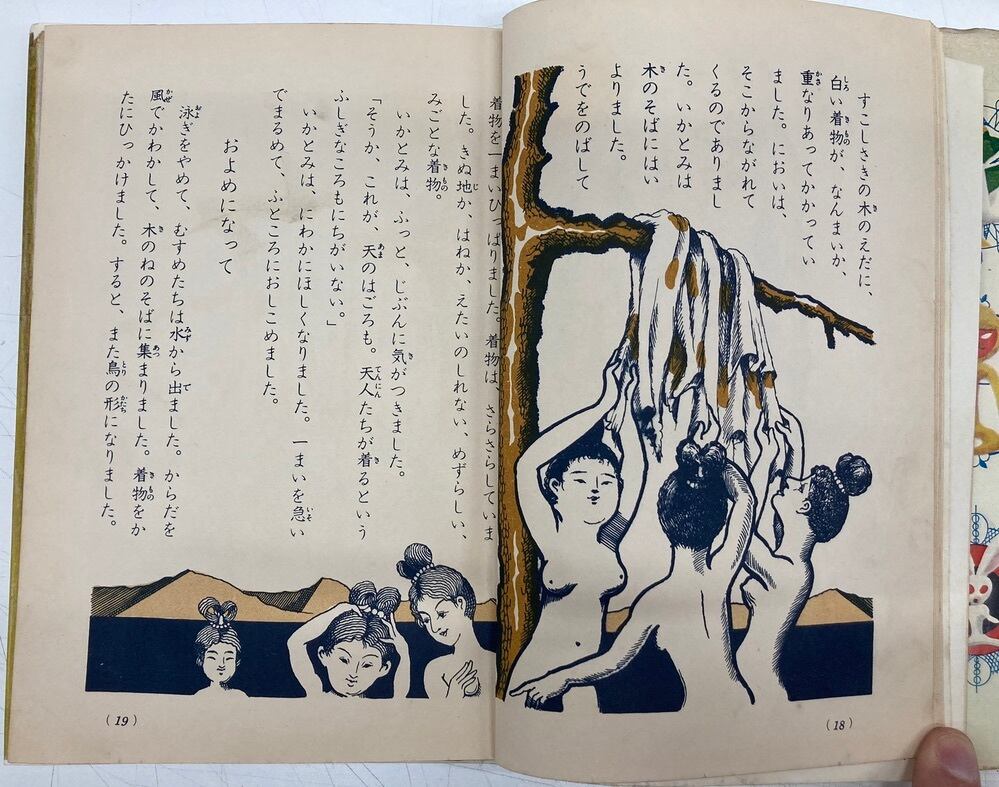 すこしさきの木のえだに、
白い着物が、なんまいか、
重なりあってかかってい
ました。においは、
そこからながれて
くるのでありまし
た。いかとみは
木のそばにはい
よりました。
うでをのばして
着物を一まいひっぱりました。着物は、さらさらしていま
した。きぬ地か、はねか、えたいのしれない、めずらしい、
みごとな着物。
いかとみは、ふっと、じぶんに気がつきました。
「そうか、これが、天のはごろも。天人たちが着るという
ふしぎなころもにちがいない。」
いかとみは、にわかにほしくなりました。一まいを急い
でまるめて、ふところにおしこめました。
およめになって
泳ぎをやめて、むすめたちは水から出ました。からだを
風でかわかして、木のねのそばに集まりました。着物をか
たにひっかけました。すると、また鳥の形になりました。
(18)
(19)